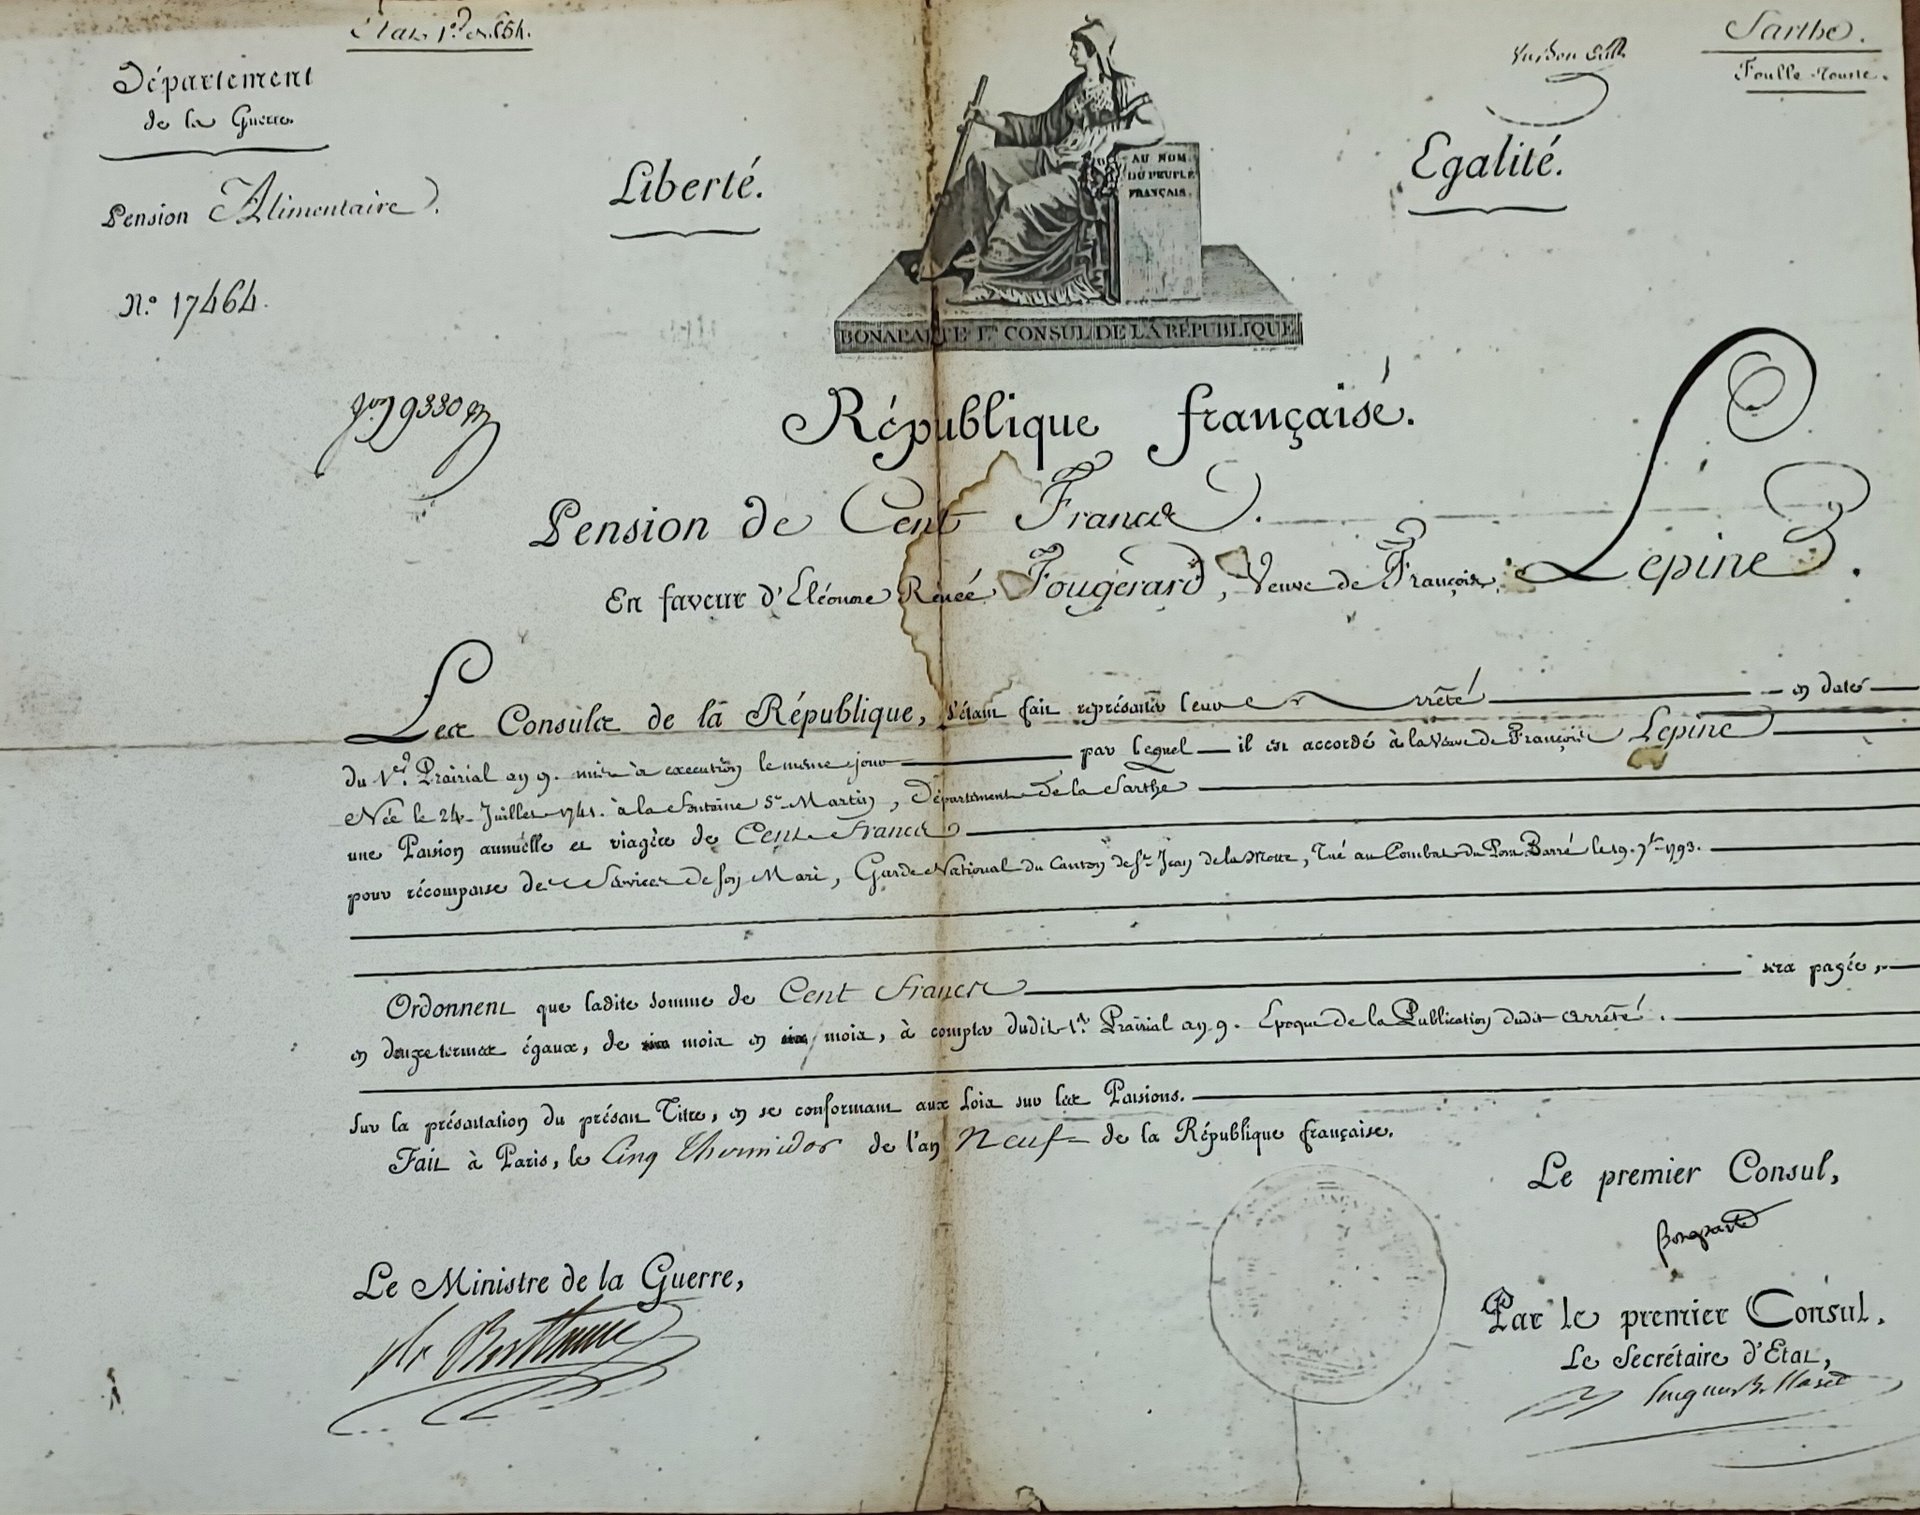 Sarthe.
Foulle-Tourte.
Département
de la Guerre
Pension Alimentaire.
N.º 17464.
Liberté.
Egalité.
AU NOM
DU PEUPLE
FRANÇAIS.
BONAPARTE I.er CONSUL DE LA RÉPUBLIQUE
9330
République française.
Pension de Cent Francs.
En faveur d'Eléonore Renée Fougerard, Veuve de François Lepine.
Les Consuls de la République, s'étant fait représenter leur arrêté en date
du 1.er Prairial an 9. mis à execution le même jour par lequel il est accordé à la Veuve de François Lepine
Née le 24 Juillet 1741. à la Fontaine St. Martin, Département de la Sarthe
une Pension annuelle et viagère de Cent Francs
pour récompense des Services de son Mari, Garde National du Canton de St. Jean de la Motte, Tué au Combat du Pont Barré le 19. 7bre 1793.
Ordonnent que ladite somme de Cent Francs sera payée,
en termes égaux, de mois en mois, à compter dudit 1.er Prairial an 9. Epoque de la Publication dudit arrêté.
sur la présentation du présent Titre, en se conformant aux Lois sur les Pensions.
Fait à Paris, le Cinq Thermidor de l'an Neuf de la République française.
Le Ministre de la Guerre,
Alex Berthier
Le premier Consul,
Bonaparte
Par le premier Consul,
Le Secrétaire d'Etat,
Hugues B. Maret